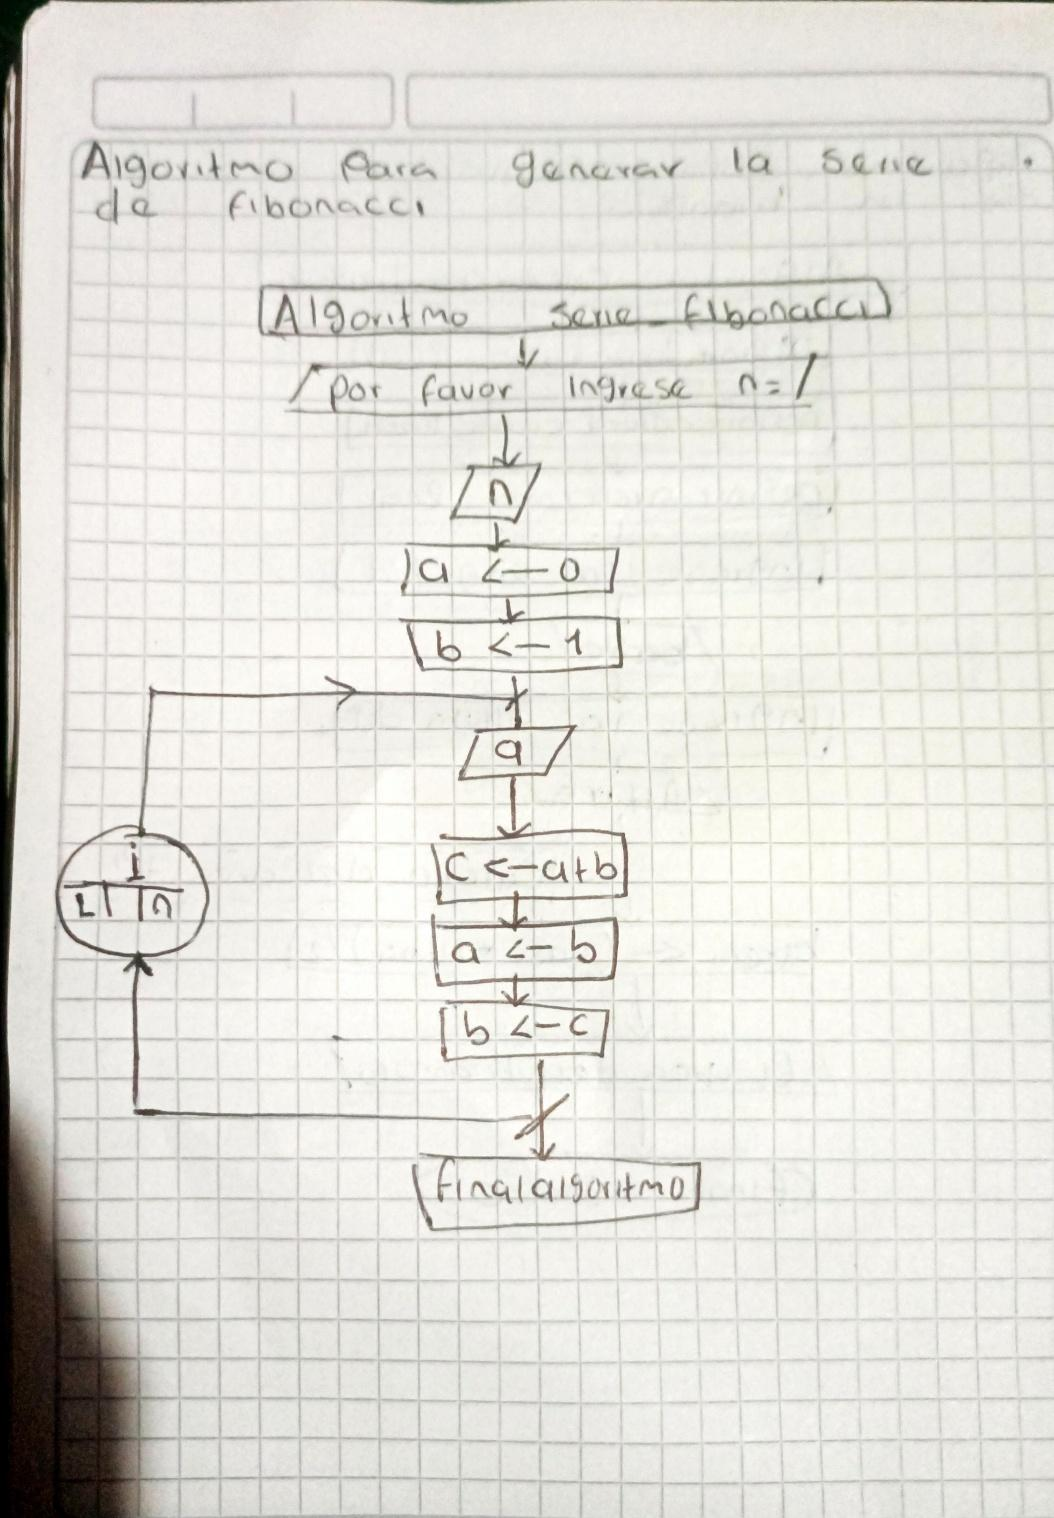 Algoritmo para generar la serie
de fibonacci
Algoritmo serie_fibonacci
por favor ingrese n=
n
a <— 0
b <— 1
a
i
n
c <— a+b
a <— b
b <— c
finalalgoritmo